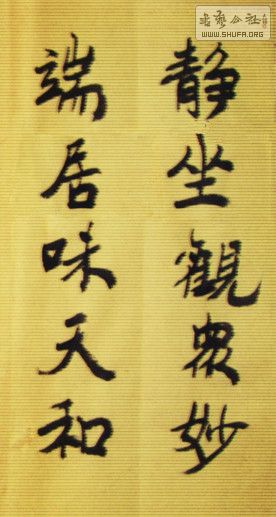 書藝公社
WWW.SHUFA.ORG
靜坐觀眾妙
端居味天和